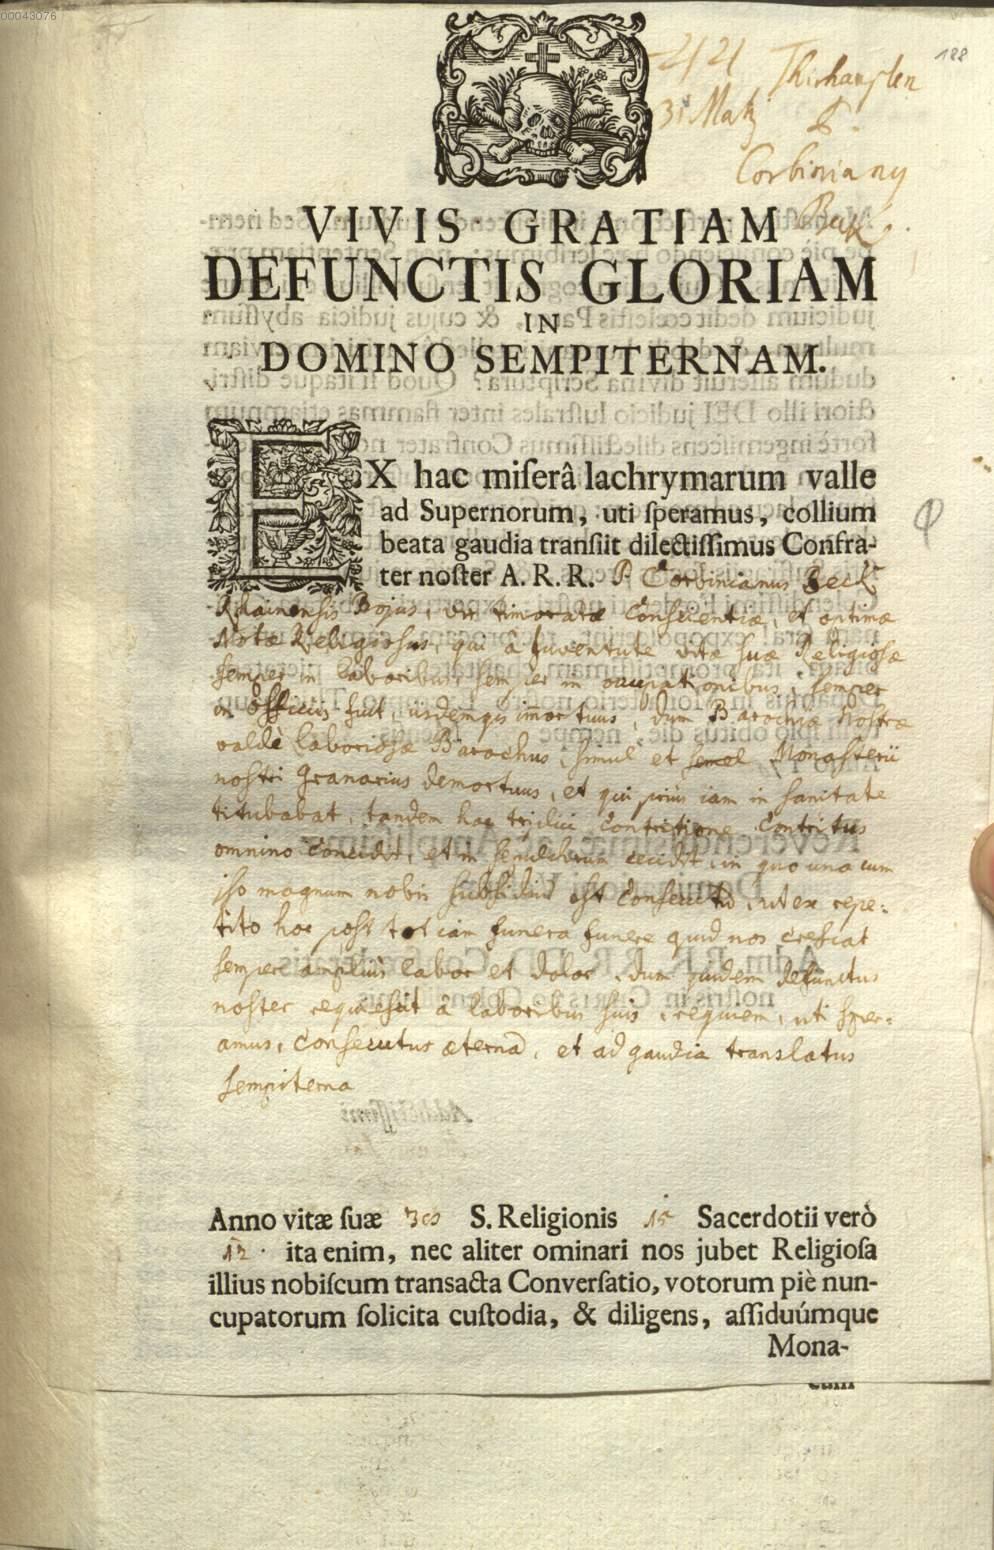 00043076
188
Thirhaupten
31 Martij
P.
Corbinianus
Beck
VIVIS GRATIAM
DEFUNCTIS GLORIAM
IN
DOMINO SEMPITERNAM.
EX hac miserâ lachrymarum valle
ad Supernorum, uti speramus, collium
beata gaudia transiit dilectissimus Confra-
ter noster A. R. R. P. Corbinianus Beck
Rhainensis Bojus, vir timoratæ Conscientiæ, et optimæ
Notæ Religiosus, qui â Juventute vitæ suæ Religiosæ
semper in laboribus, semper in occupationibus, semper
in officiis fuit, iisdemque immortuus, dum Parochiæ Nostræ
valdè laboriosæ Parochus, simul et semel Monasterii
nostri Granarius demortuus, et qui prius iam in sanitate
titubabat, tandem hac tridui contritione contritus
omnino concidit, et in sepulchrum cecidit, in quo una cum
ipso magnum nobis subsidium est consepultum, ut ex repe-
tito hoc post tot iam funera funere quid nos crescat
semper amplius labor et dolor, dum quidem defunctus
noster requiescit â laboribus suis, requiem, uti sper-
amus, consecutus æternam, et ad gaudia translatus
sempiterna
Anno vitæ suæ S. Religionis 15 Sacerdotii verò
12. ita enim, nec aliter ominari nos jubet Religiosa
illius nobiscum transacta Conversatio, votorum piè nun-
cupatorum solicita custodia, & diligens, assiduúmque
Mona-